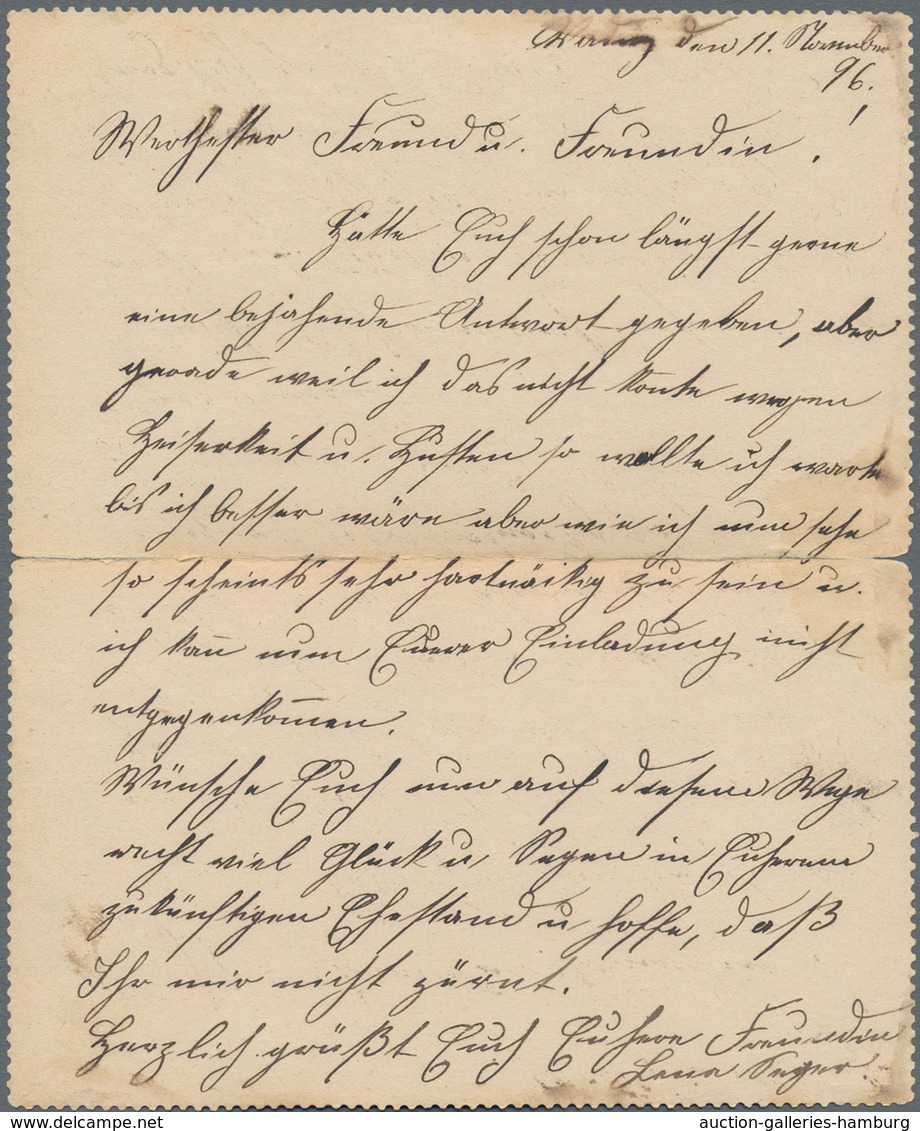 Vaduz den 11. November
96.
Werthester Freund u. Freundin!
Hätte Euch schon längst gerne
eine bejahende Antwort gegeben, aber
gerade weil ich das nicht konte wegen
Heiserkeit u. Husten so wollte ich warte
bis ich besser wäre aber wie ich nun sehe
so scheints sehr hartnäikig zu sein u.
ich kan̄ nun Euerer Einladung nicht
entgegenkom̄en.
Wünsche Euch nun auf diesem Wege
recht viel Glück u. Segen in Euherem
zukünftigen Ehestand u hoffe, daß
Ihr mir nicht zürnt.
Herzlich grüßt Euch Euhere Freundin
Lena Seger.
auction-galleries-hamburg